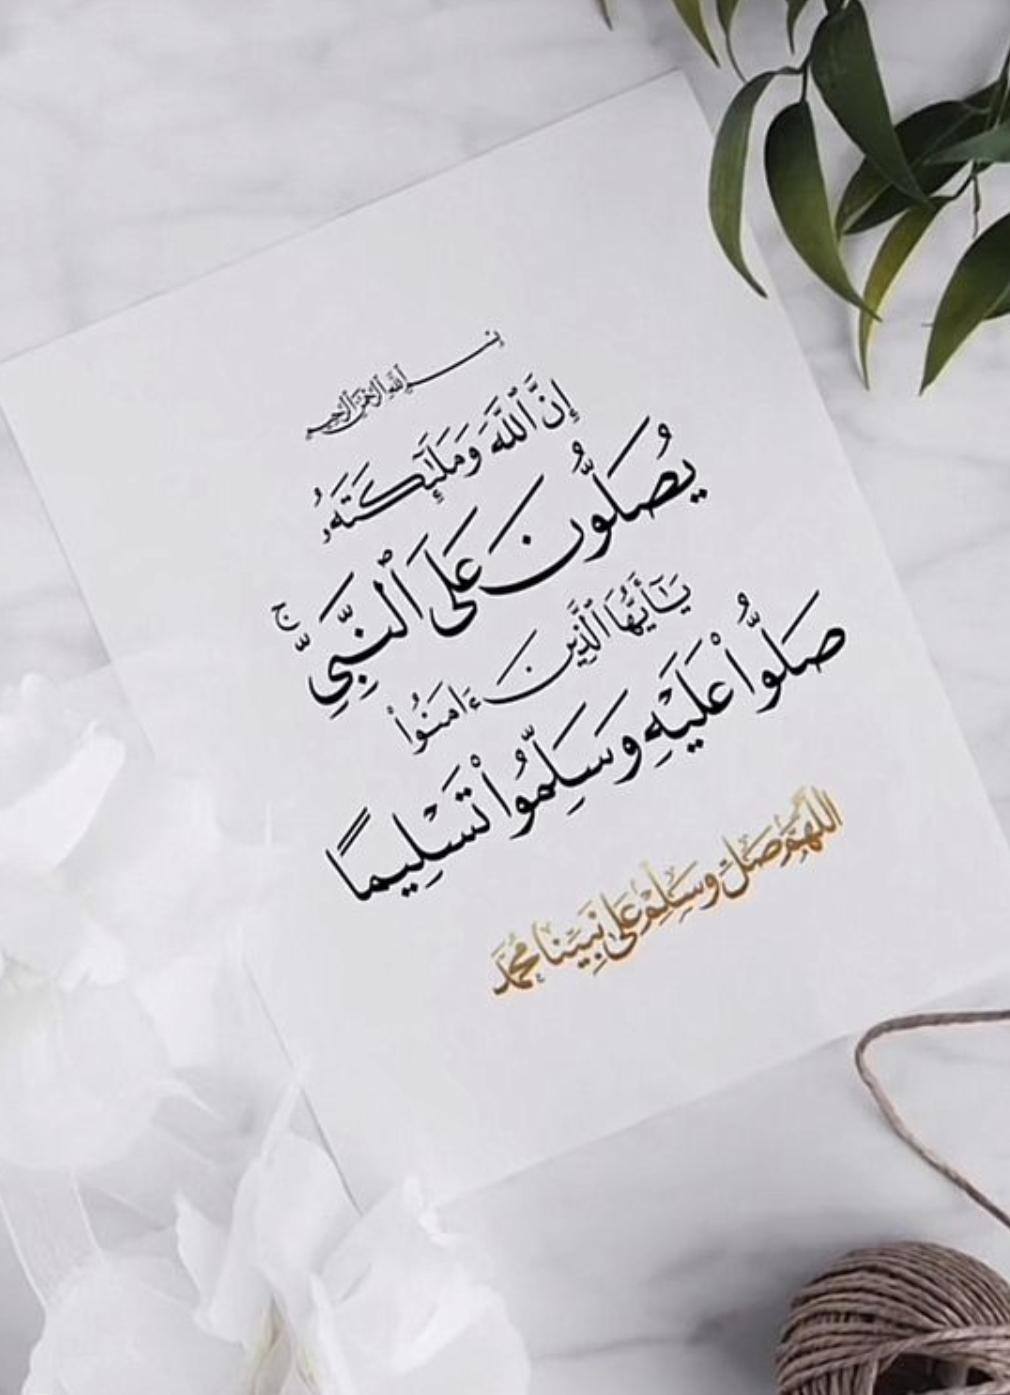 بسم الله الرحمن الرحيم
إِنَّ ٱللَّهَ وَمَلَٰٓئِكَتَهُۥ
يُصَلُّونَ عَلَى ٱلنَّبِىِّ ۚ
يَٰٓأَيُّهَا ٱلَّذِينَ ءَامَنُوا۟
صَلُّوا۟ عَلَيْهِ وَسَلِّمُوا۟ تَسْلِيمًا
اللَّهُمَّ صَلِّ وَسَلِّمْ عَلَى نَبِيِّنَا مُحَمَّد